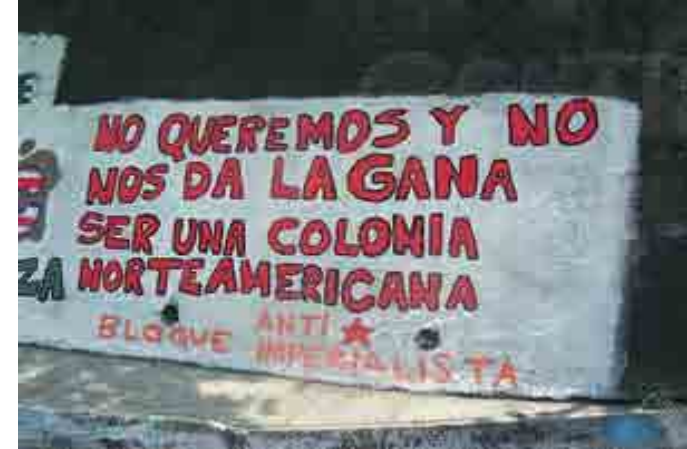 NO QUEREMOS Y NO
NOS DA LA GANA
SER UNA COLONIA
NORTEAMERICANA
BLOQUE ANTI
IMPERIALISTA